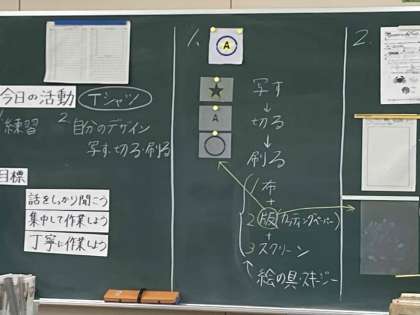 今日の活動 Tシャツ
1 練習 2 自分のデザイン
写す・切る・刷る
目標
話をしっかり聞こう
集中して作業しよう
丁寧に作業しよう
1.
A
★
A
写す
↓
切る
↓
刷る
1 布
+
2 版(カッティングペーパー)
+
3 スクリーン
絵の具・スキージー
2.